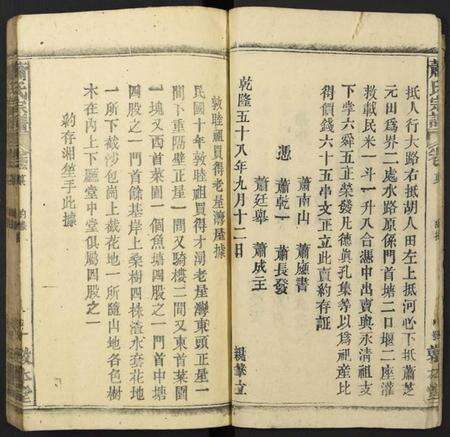 抵人行大路右抵胡人田左上抵河心下抵蕭芝
元田爲界二處水路原係門首塘二口堰二座灌
救載民米一斗一升入合憑中出賣與永清祖支
下孝六舜五正榮發凡德眞孔集等以爲祖産比
下得價錢六十五串文正立此賣約存証
憑 蕭南山 蕭盛書
蕭乾一 蕭長發
蕭廷舉 蕭成主
乾隆五十八年九月十二日 親筆立
敦睦祖買得老屋灣屋據
民國十年敦睦祖買得才湖老屋灣東頭正屋一
間下重隔壁正屋一間又騎樓二間又東首菜園
一塊又西首菜園一個魚塘四股之一門首中塘
四股之一門首餘基岸上桑樹四株濫水套花地
一所下截沙包崗上截花地一所隨內地各色樹
木在內上下廳堂中堂俱屬四股之一
約存湘筆手此據
蕭氏宗譜